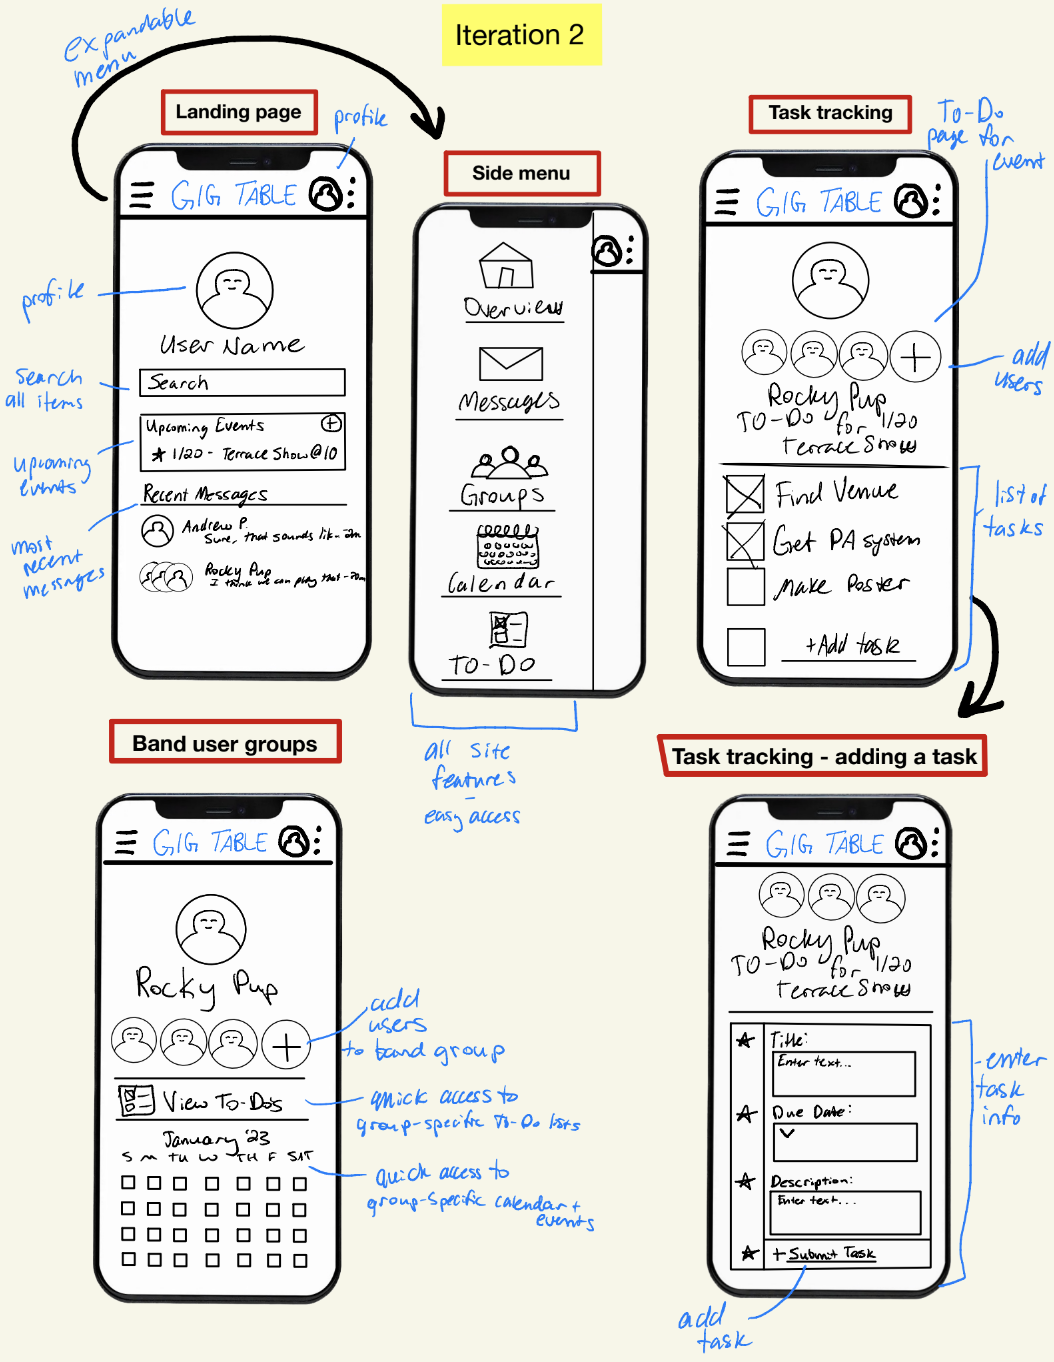 Iteration 2
expandable
menu
Landing page
profile
GIG TABLE
profile
User Name
Search
all items
Search
upcoming
events
Upcoming Events +
★ 1/20 - Terrace Show @ 10
most
recent
messages
Recent Messages
Andrew P.
Sure, that sounds lik - 2m
Rocky Pup
I think we can play that - 20m
Side menu
Overview
Messages
Groups
Calendar
TO-DO
all site
features
-
easy access
Task tracking
TO-DO
page for
event
GIG TABLE
+
add
users
Rocky Pup
TO-DO for 1/20
Terrace Show
list of
tasks
Find Venue
Get PA system
Make Poster
+Add task
Band user groups
GIG TABLE
Rocky Pup
+
add
users
to band group
View To-Do's
quick access to
group-specific To-Do lists
January '23
S M TU W TH F SAT
quick access to
group-specific calendar +
events
Task tracking - adding a task
GIG TABLE
Rocky Pup
TO-DO for 1/20
Terrace Show
Title:
Enter text...
enter
task
info
Due Date:
Description:
Enter text...
+ Submit Task
add
task